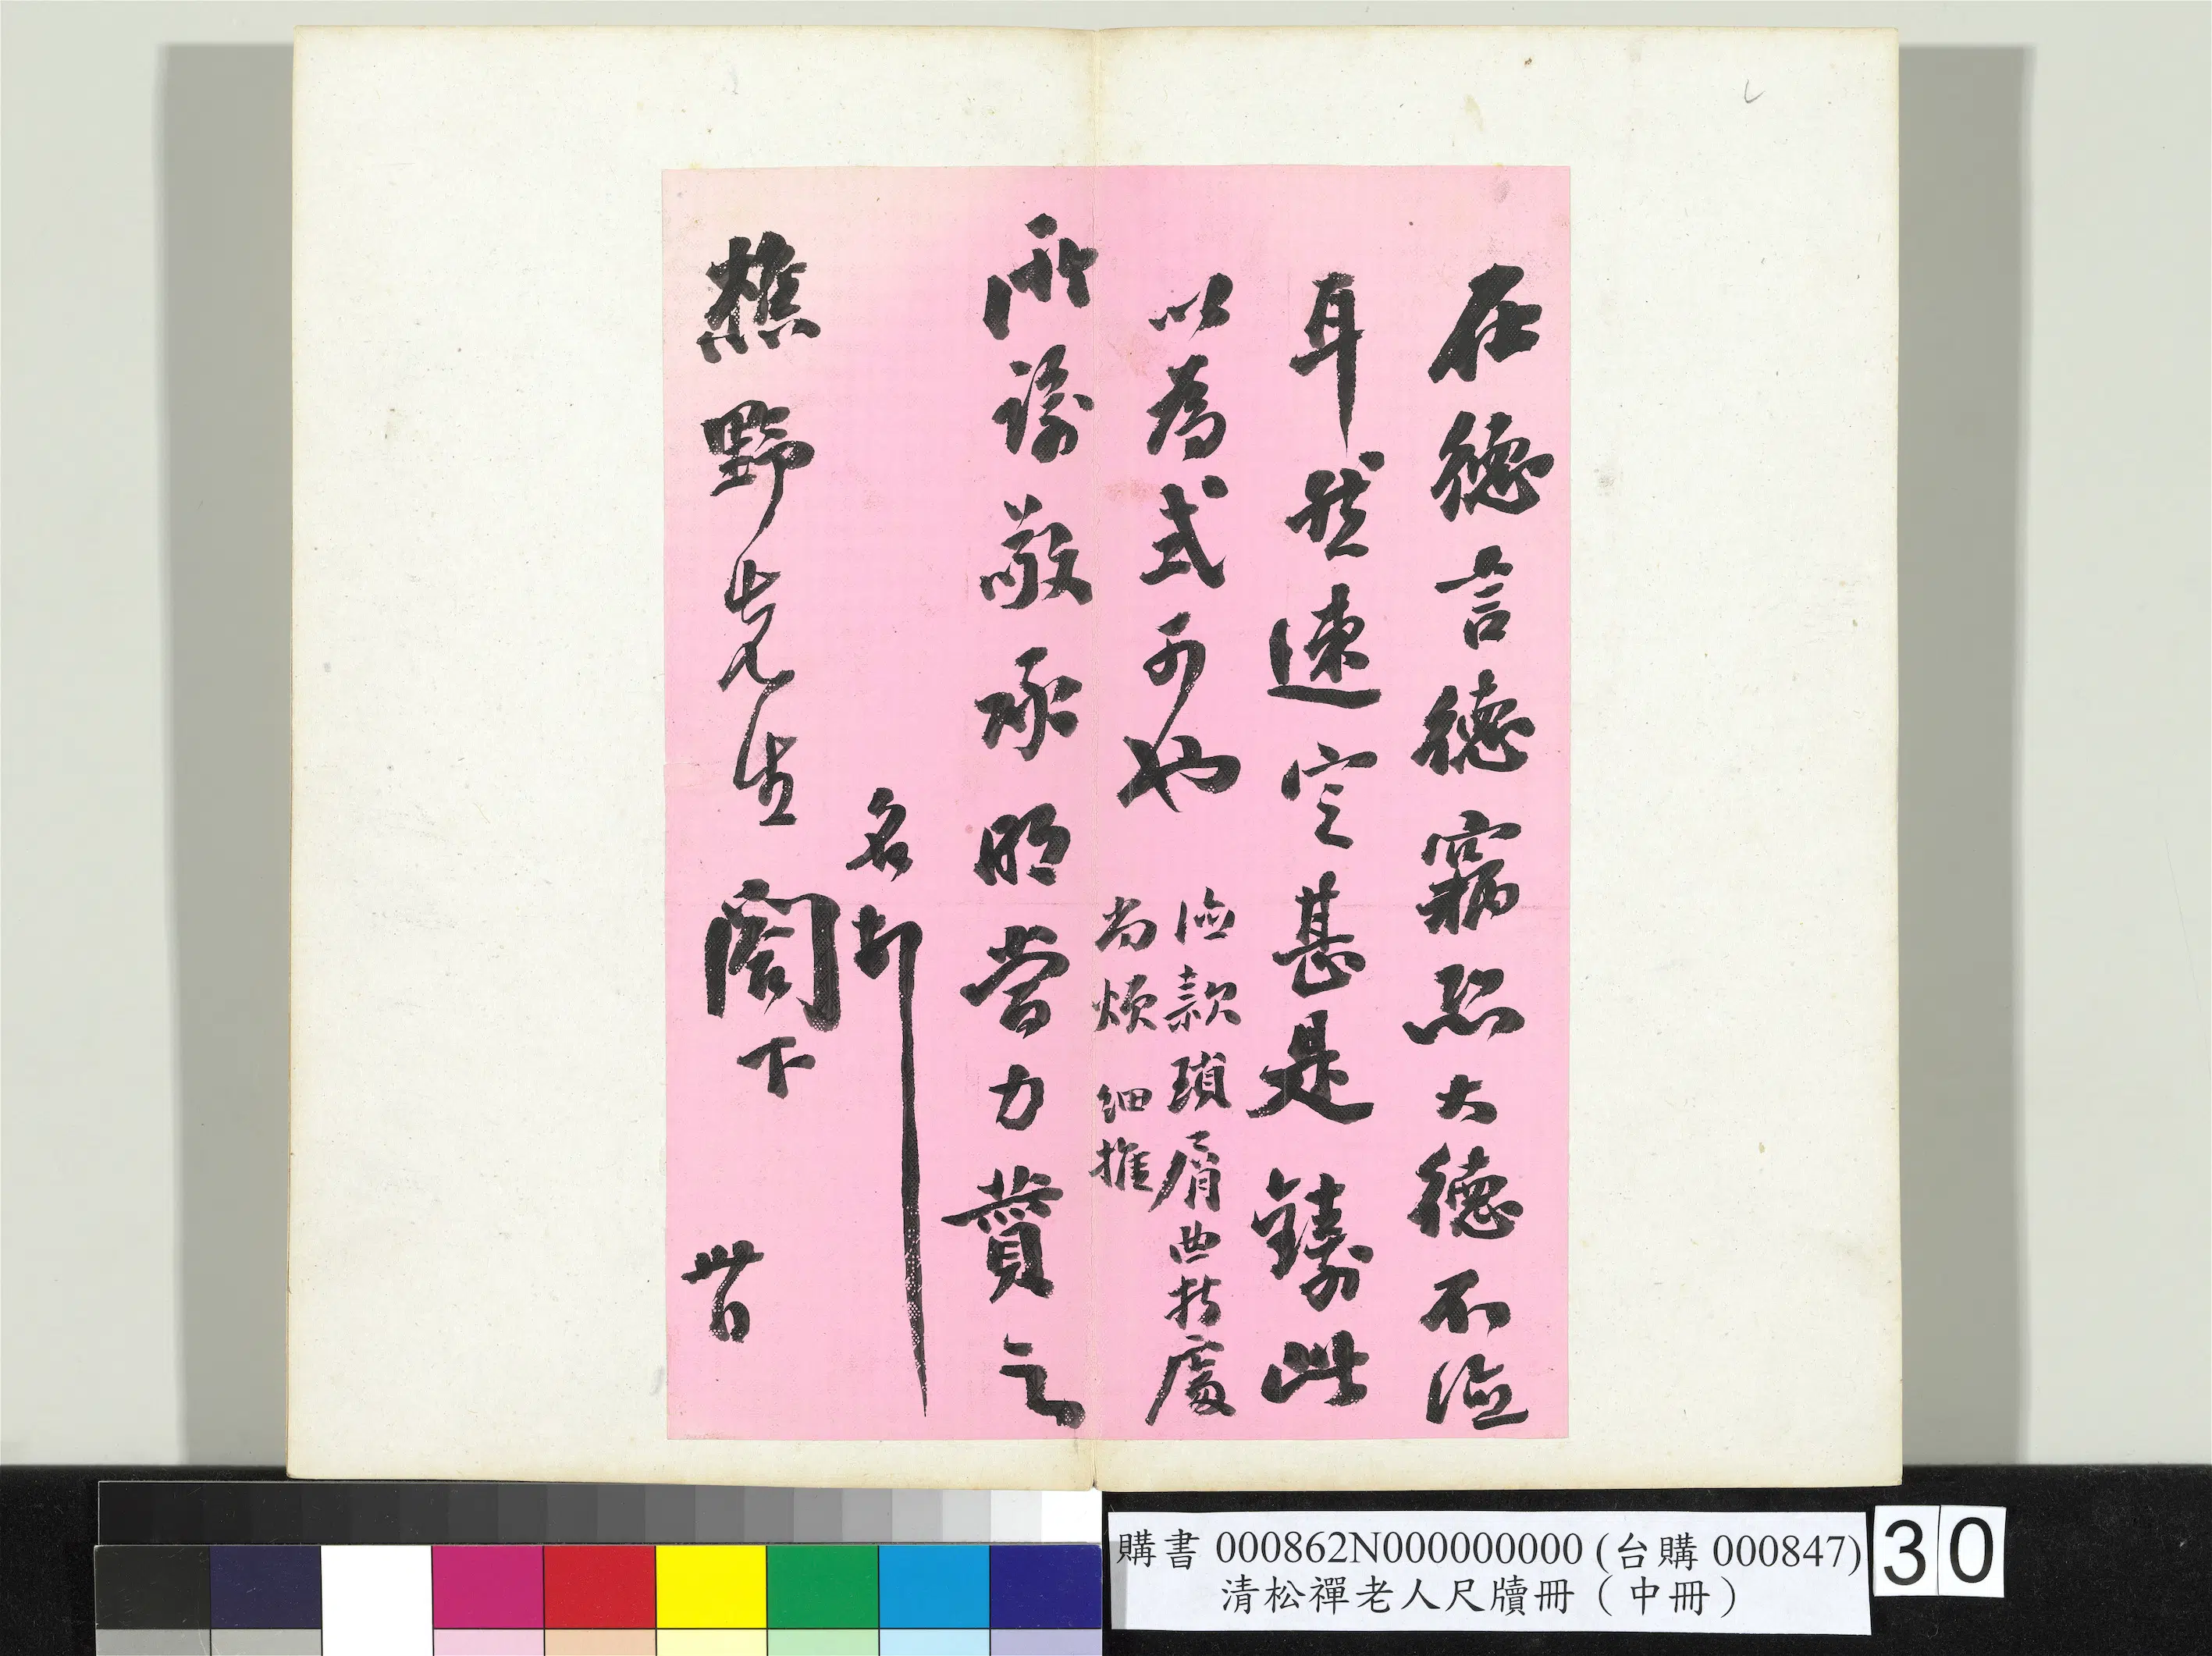 在德言德竊恐大德不洽
耳然速定甚是鑄此
以為式可也
洽款瑣屑曲折處
尚煩細推
所諭敬承明當力贊之
名
樵野先生閣下 廿日
購書 000862N000000000 (台購 000847)
清松禪老人尺牘冊（中冊）
30